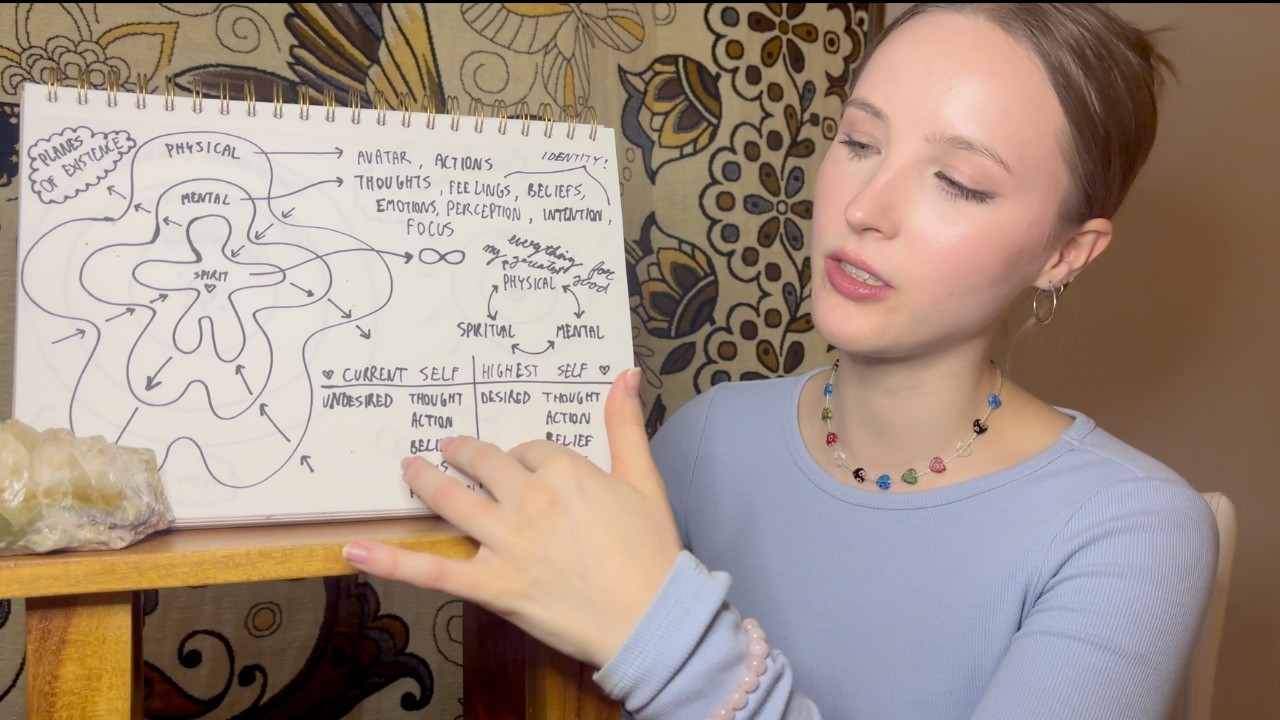 PLANES
OF EXISTENCE
PHYSICAL
MENTAL
SPIRIT
AVATAR, ACTIONS
IDENTITY!
THOUGHTS, FEELINGS, BELIEFS,
EMOTIONS, PERCEPTION, INTENTION,
FOCUS
∞
everything
my greatest
for
good
PHYSICAL
SPIRITUAL
MENTAL
CURRENT SELF
HIGHEST SELF
UNDESIRED THOUGHT
ACTION
DESIRED THOUGHT
ACTION
BELIEF